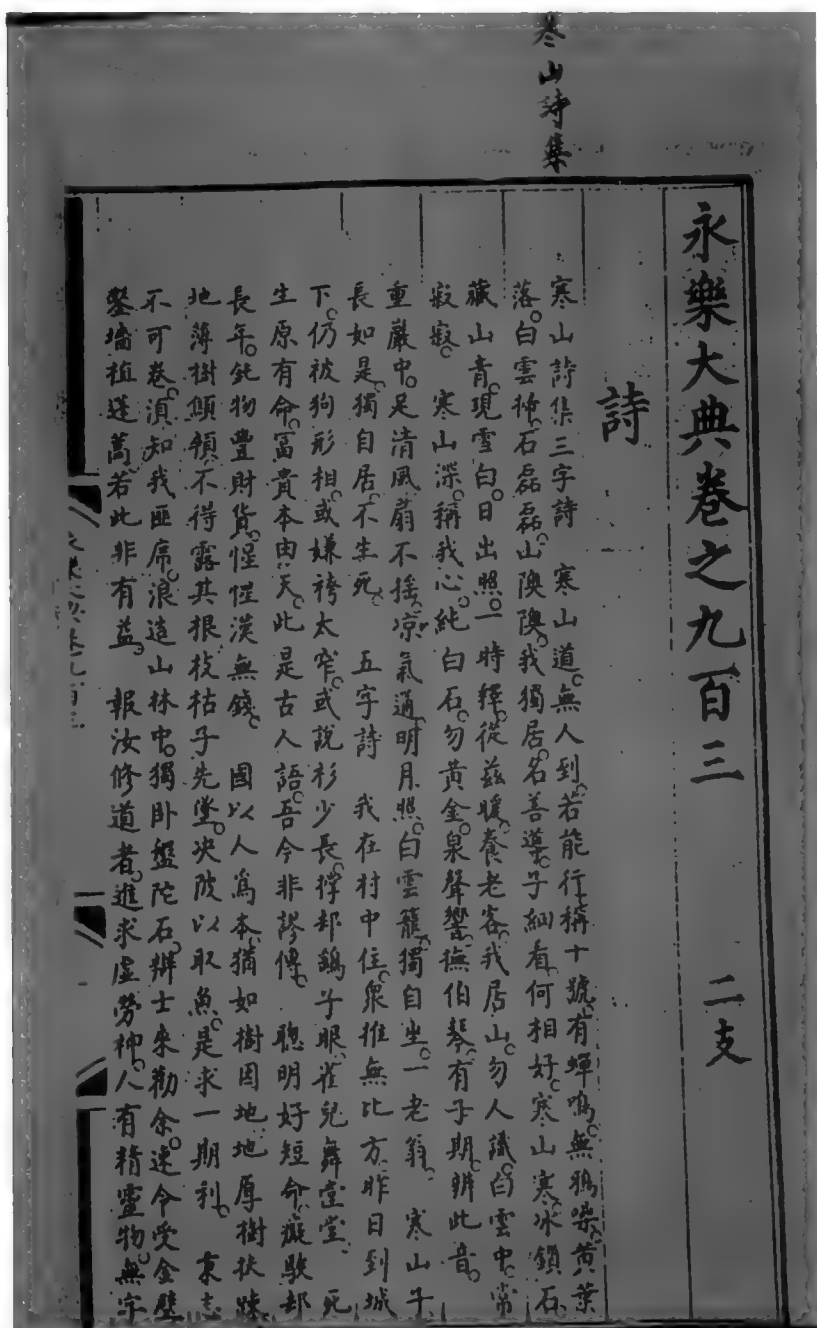 寒山詩集
永樂大典卷之九百三　二支
詩
寒山詩集三字詩　寒山道。無人到。若能行。稱十號。有蟬鳴。無鴉噪。黃葉
落。白雲掃。石磊磊。山隩隩。我獨居。名善導。子細看。何相好。寒山寒。冰鎖石。
藏山青。現雪白。日出照。一時釋。從兹暖。養老客。我居山。勿人識。白雲中。常
寂寂。　寒山深。稱我心。純白石。勿黃金。泉聲響。撫伯琴。有子期。辨此音。
重巖中。足清風。扇不搖。凉氣通。明月照。白雲籠。獨自坐。一老翁。　寒山子。
長如是。獨自居。不生死。　五字詩　我在村中住。衆推無比方。昨日到城
下。仍被狗形相。或嫌袴太窄。或說衫少長。撑却鷂子眼。雀兒舞堂堂。　死
生原有命。富貴本由天。此是古人語。吾今非謬傳。　聰明好短命。癡騃却
長年。鈍物豐財貨。惺惺漢無錢。　國以人爲本。猶如樹因地。地厚樹扶疎。
地薄樹顦顇。不得露其根。枝枯子先墜。決陂以取魚。是求一期利。　東志
不可卷。湏知我匪席。浪造山林中。獨卧盤陀石。辨士來勸余。速令受金璧。
鑿墻植蓬蒿。若此非有益。　報汝修道者。進求虛勞神。人有精靈物。無字